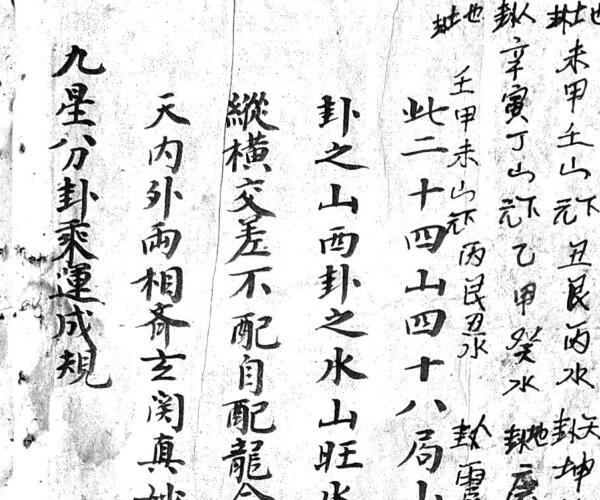 地卦未甲壬山下元丑艮丙水天卦坤
人卦辛寅丁山下元乙甲癸水地卦
地卦壬甲未山下元丙艮丑水人卦
此二十四山四十八局
卦之山西卦之水山旺水
縱橫交差不配自配龍
天内外両相齊玄関真妙
九星分卦乘運成規